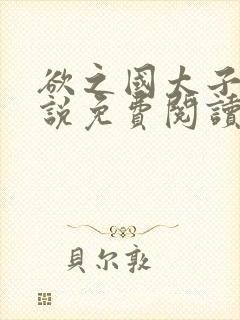 欲之國太子
說免費閱讀
貝尔敦